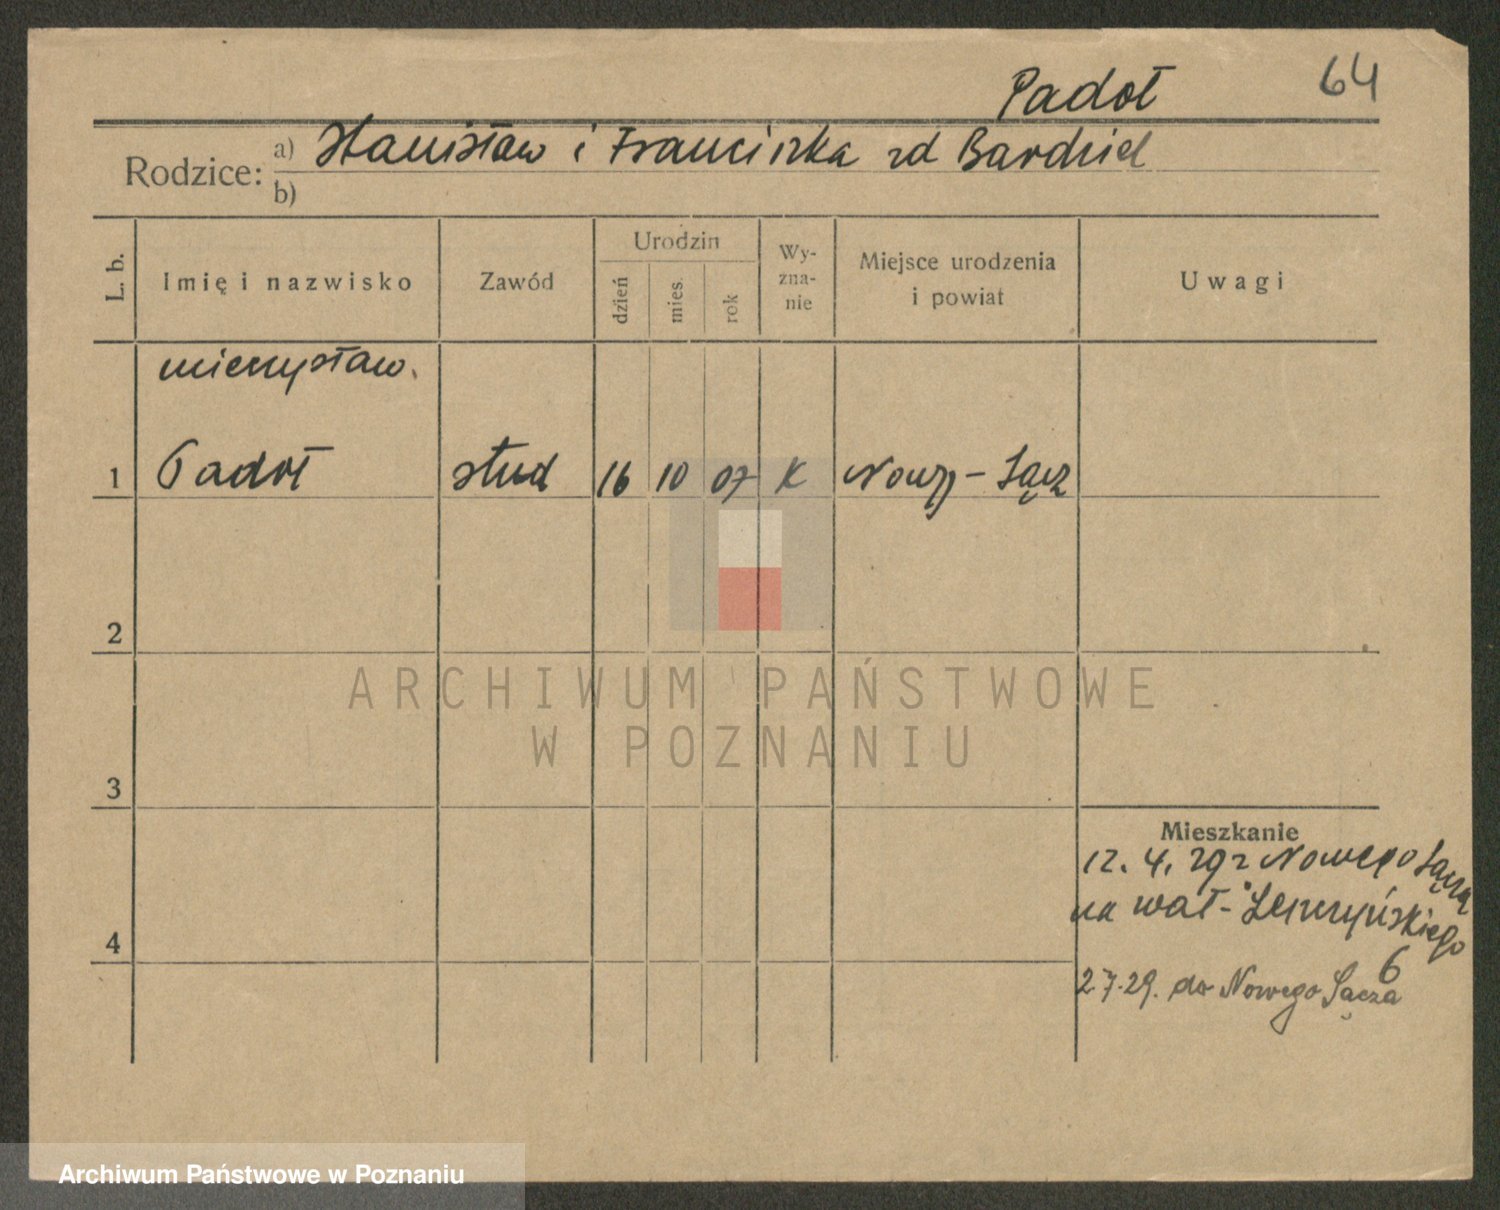 64
Padoł
Rodzice: a) Stanisław i Franciszka zd Bardziel
b)
L. b.
Imię i nazwisko
Zawód
Urodzin
dzień
mies.
rok
Wy-
zna-
nie
Miejsce urodzenia
i powiat
Uwagi
mieczysław.
1 Padoł stud 16 10 07 K Nowy - Sącz
2
3
4
Mieszkanie
12. 4. 29 z Nowego Sącza
na wał - Leszczyńskiego
6
2 7. 29. do Nowego Sącza
ARCHIWUM PAŃSTWOWE
W POZNANIU
Archiwum Państwowe w Poznaniu